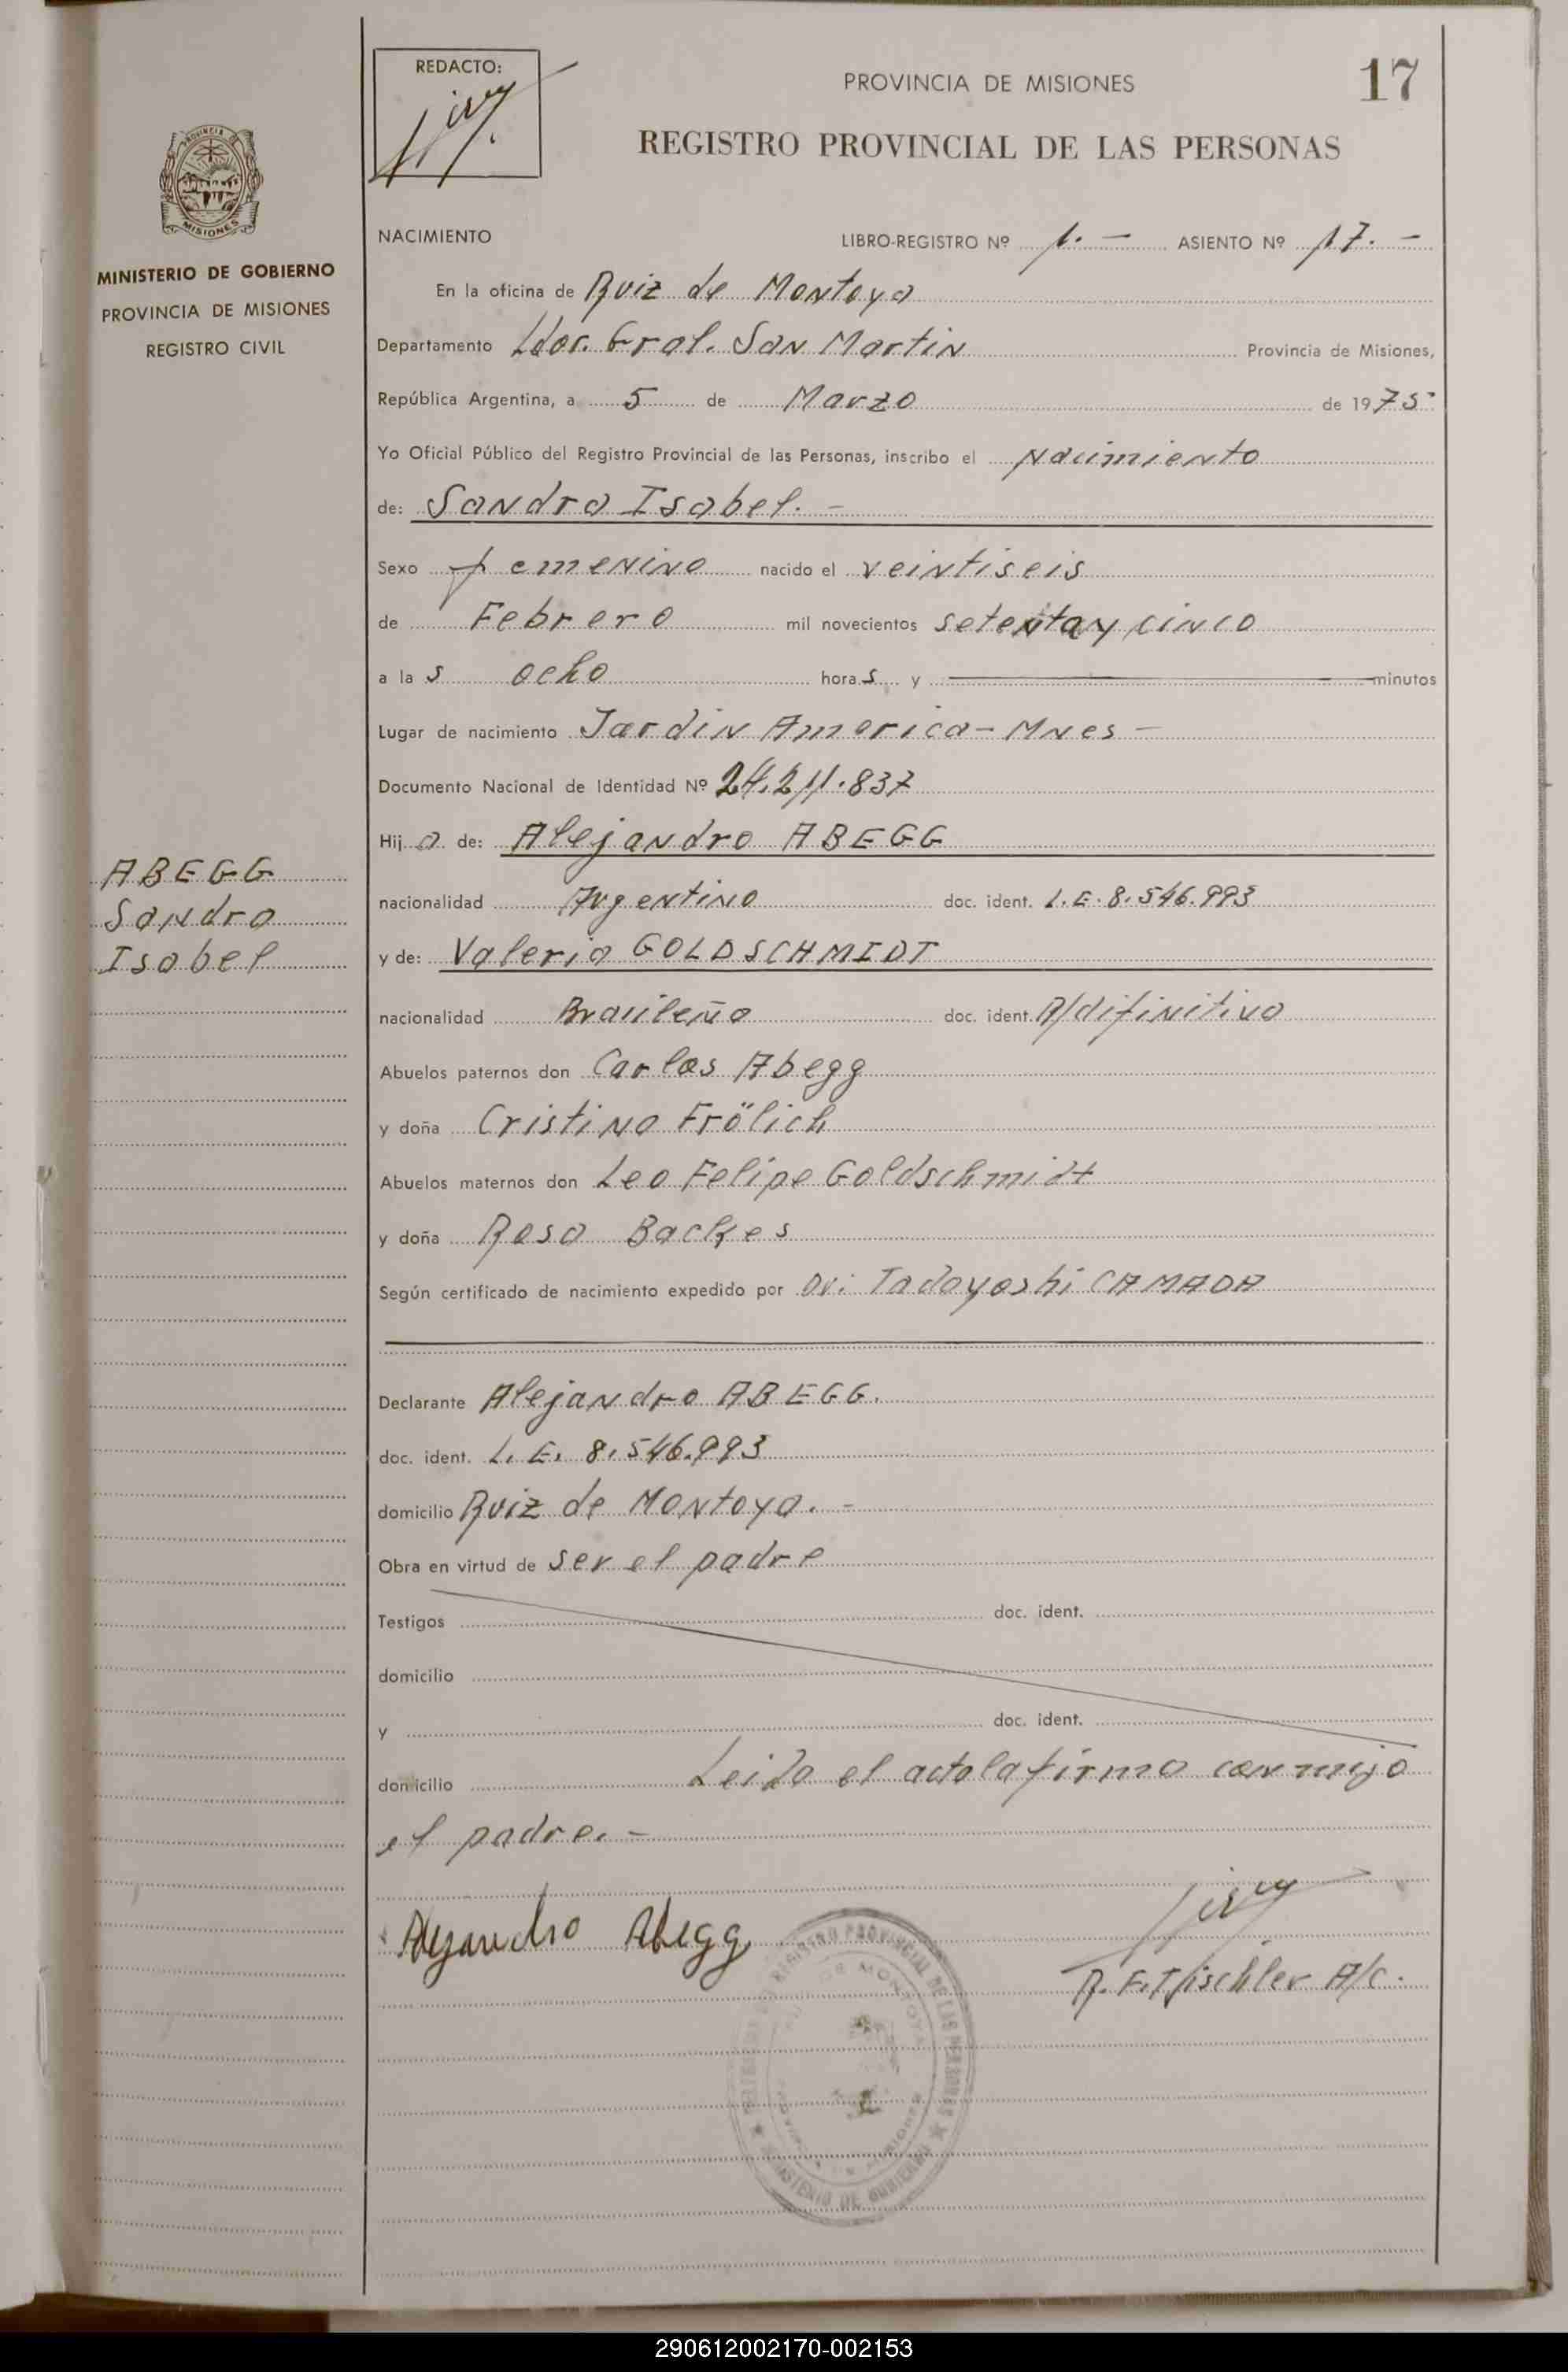 REDACTO:
PROVINCIA DE MISIONES
17
REGISTRO PROVINCIAL DE LAS PERSONAS
PROVINCIA DE
MISIONES
MINISTERIO DE GOBIERNO
PROVINCIA DE MISIONES
REGISTRO CIVIL
NACIMIENTO LIBRO-REGISTRO Nº 1.- ASIENTO Nº 17.-
En la oficina de Ruiz de Montoya
Departamento Ldor. Gral. San Martin Provincia de Misiones,
República Argentina, a 5 de Marzo de 1975
Yo Oficial Público del Registro Provincial de las Personas, inscribo el Nacimiento
de: Sandra Isabel.-
Sexo femenino nacido el veintiseis
de Febrero mil novecientos setenta y cinco
a las ocho horas y minutos
Lugar de nacimiento Jardin America - Mnes -
Documento Nacional de Identidad Nº 24.211.837
Hija de: Alejandro ABEGG
ABEGG
Sandra
Isabel
nacionalidad Argentino doc. ident. L.E. 8.546.993
y de: Valeria GOLDSCHMIDT
nacionalidad Brasileña doc. ident. R/difinitivo
Abuelos paternos don Carlos Abegg
y doña Cristina Frölich
Abuelos maternos don Leo Felipe Goldschmidt
y doña Rosa Backes
Según certificado de nacimiento expedido por Dr: Tadayoshi CAMADA
Declarante Alejandro ABEGG.
doc. ident. L.E. 8.546.993
domicilio Ruiz de Montoya.-
Obra en virtud de ser el padre
Testigos doc. ident.
domicilio
y doc. ident.
domicilio Leida el acta la firma conmigo
el padre.-
Alejandro Abegg
REGISTRO PROVINCIAL DE LAS PERSONAS
MINISTERIO DE GOBIERNO
290612002170-002153